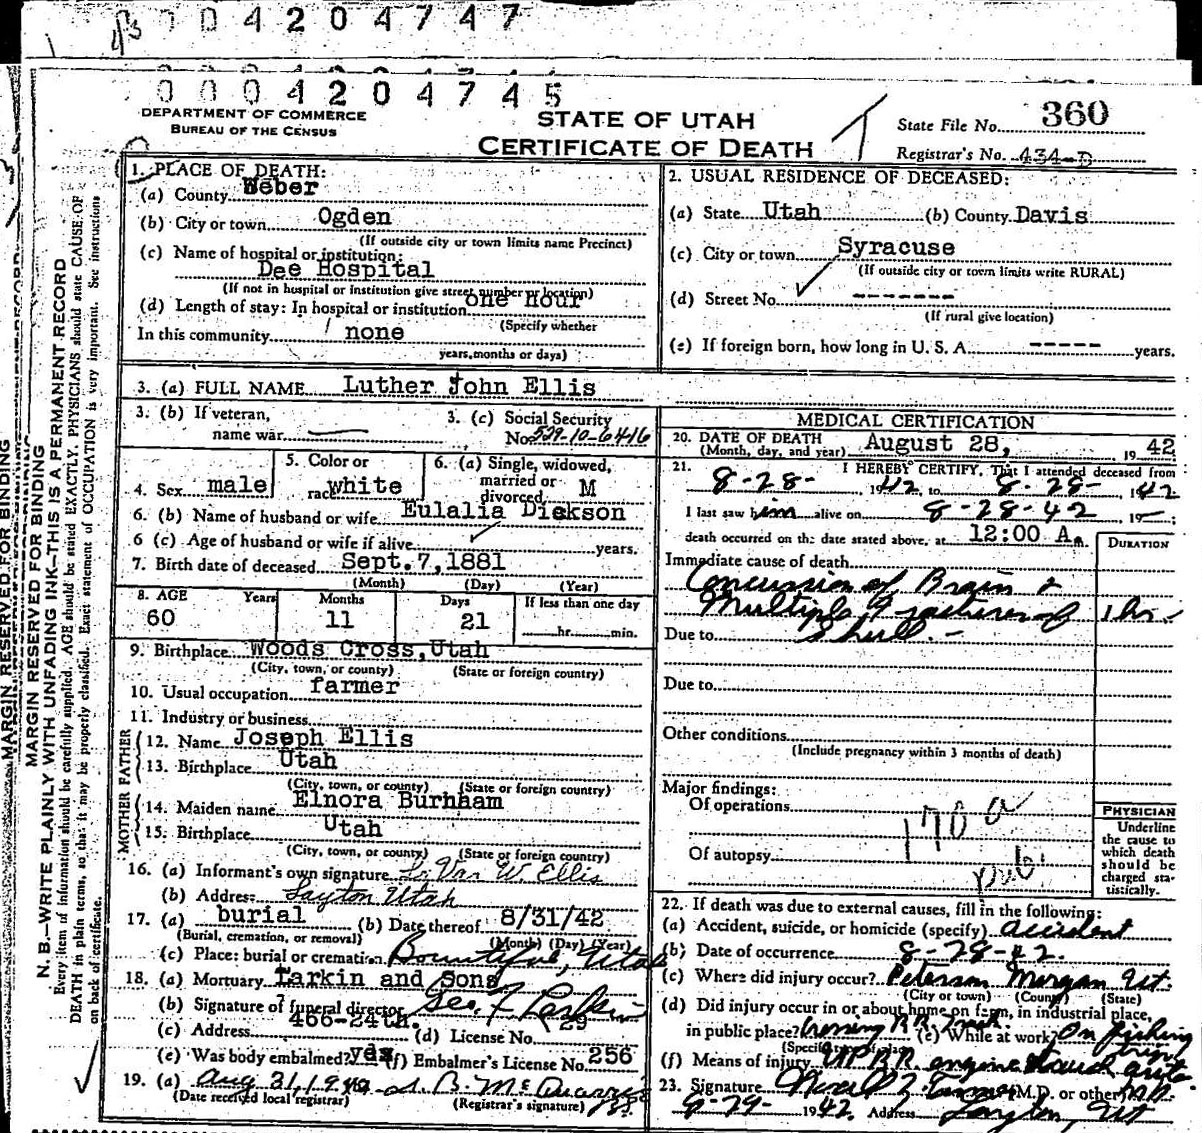 0 0 0 4 2 0 4 7 4 7
0 0 0 4 2 0 4 7 4 5
DEPARTMENT OF COMMERCE
BUREAU OF THE CENSUS
STATE OF UTAH
CERTIFICATE OF DEATH
State File No. 360
Registrar's No. 434-D
MARGIN RESERVED FOR BINDING
MARGIN RESERVED FOR BINDING
N. B.—WRITE PLAINLY WITH UNFADING INK—THIS IS A PERMANENT RECORD
Every item of information should be carefully supplied. AGE should be stated EXACTLY. PHYSICIANS should state CAUSE OF
DEATH in plain terms, so that it may be properly classified. Exact statement of OCCUPATION is very important. See instructions
on back of certificate.
1. PLACE OF DEATH:
(a) County Weber
(b) City or town Ogden
(If outside city or town limits name Precinct)
(c) Name of hospital or institution:
Dee Hospital
(If not in hospital or institution give street number or location)
(d) Length of stay: In hospital or institution one hour
(Specify whether
In this community none
years, months or days)
2. USUAL RESIDENCE OF DECEASED:
(a) State Utah (b) County Davis
(c) City or town Syracuse
(If outside city or town limits write RURAL)
(d) Street No. -------
(If rural give location)
(e) If foreign born, how long in U. S. A. ----- years.
3. (a) FULL NAME Luther John Ellis
3. (b) If veteran,
name war —
3. (c) Social Security
No. 529-10-6416
4. Sex male
5. Color or
race white
6. (a) Single, widowed,
married or
divorced M
6. (b) Name of husband or wife Eulalia Dickson
6 (c) Age of husband or wife if alive years.
7. Birth date of deceased Sept. 7, 1881
(Month) (Day) (Year)
8. AGE Years Months Days If less than one day
60 11 21 hr. min.
9. Birthplace Woods Cross, Utah
(City, town, or county) (State or foreign country)
10. Usual occupation farmer
11. Industry or business
FATHER
12. Name Joseph Ellis
13. Birthplace Utah
(City, town, or county) (State or foreign country)
MOTHER
14. Maiden name Elnora Burnham
15. Birthplace Utah
(City, town, or county) (State or foreign country)
16. (a) Informant's own signature La Van W. Ellis
(b) Address Layton Utah
17. (a) burial (b) Date thereof 8/31/42
(Burial, cremation, or removal) (Month) (Day) (Year)
(c) Place: burial or cremation Bountiful, Utah
18. (a) Mortuary Larkin and Sons
(b) Signature of funeral director Geo. F. Larkin
(c) Address 466-24th. (d) License No. 29
(e) Was body embalmed? yes (f) Embalmer's License No. 256
19. (a) Aug 31, 19
(Date received local registrar) (Registrar's signature)
MEDICAL CERTIFICATION
20. DATE OF DEATH August 28, 19 42
(Month, day, and year)
21. I HEREBY CERTIFY, That I attended deceased from
8-28- , 1942, to 8-28- 1942
I last saw him alive on 8-28-42 19—;
death occurred on the date stated above, at 12:00 A.
DURATION
Immediate cause of death
Concussion of Brain &
Multiple fractures of 1 hr.
Due to Skull. -
Due to
Other conditions
(Include pregnancy within 3 months of death)
Major findings:
Of operations
170 a
Of autopsy
PHYSICIAN
Underline
the cause to
which death
should be
charged sta-
tistically.
22. If death was due to external causes, fill in the following:
(a) Accident, suicide, or homicide (specify) accident
(b) Date of occurrence 8-28-42.
(c) Where did injury occur? Peterson Morgan Ut.
(City or town) (County) (State)
(d) Did injury occur in or about home, on farm, in industrial place,
in public place? Crossing R.R. Track. (e) While at work? On fishing trip
(Specify
(f) Means of injury U.P.R.R. engine struck auto
23. Signature M.D. or other M.D.
8-29- 1942 Address Layton, Ut